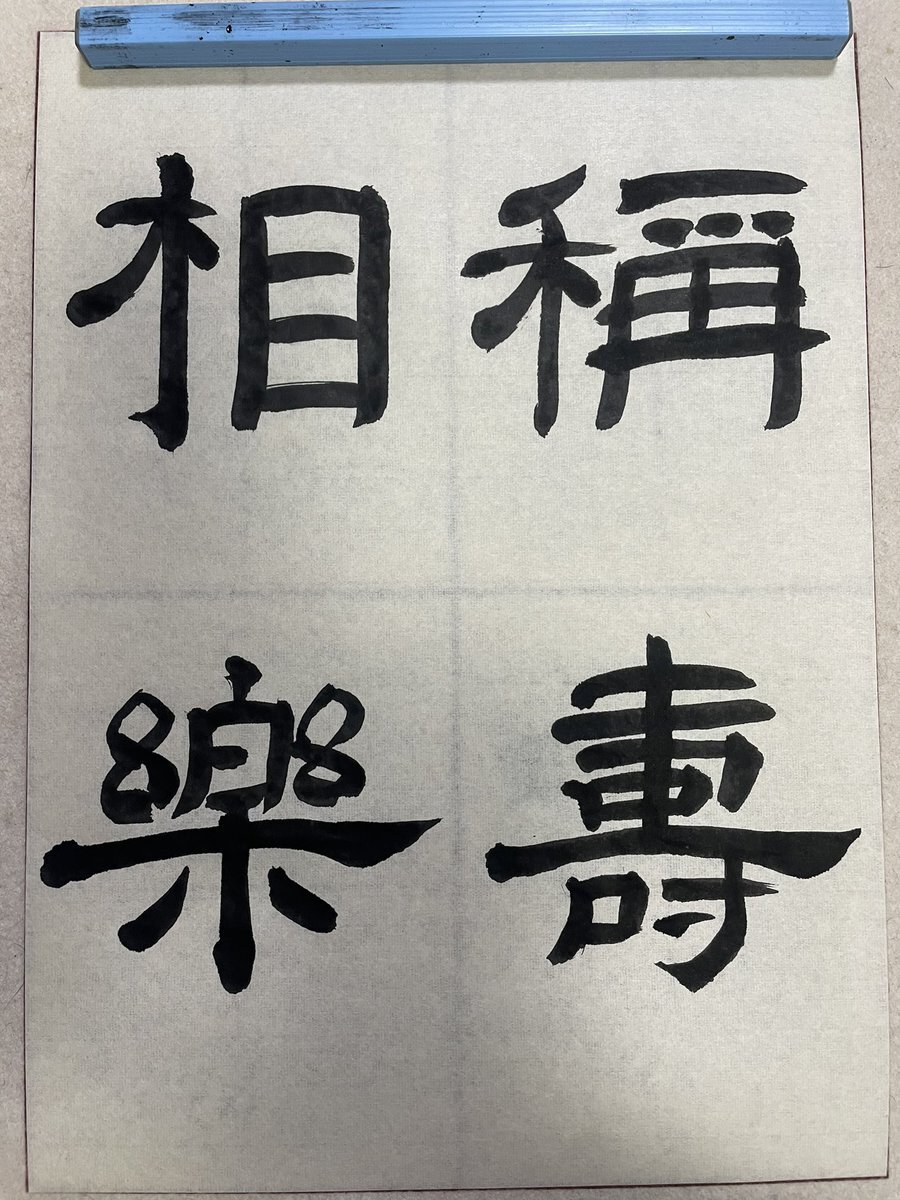 稱壽
相樂